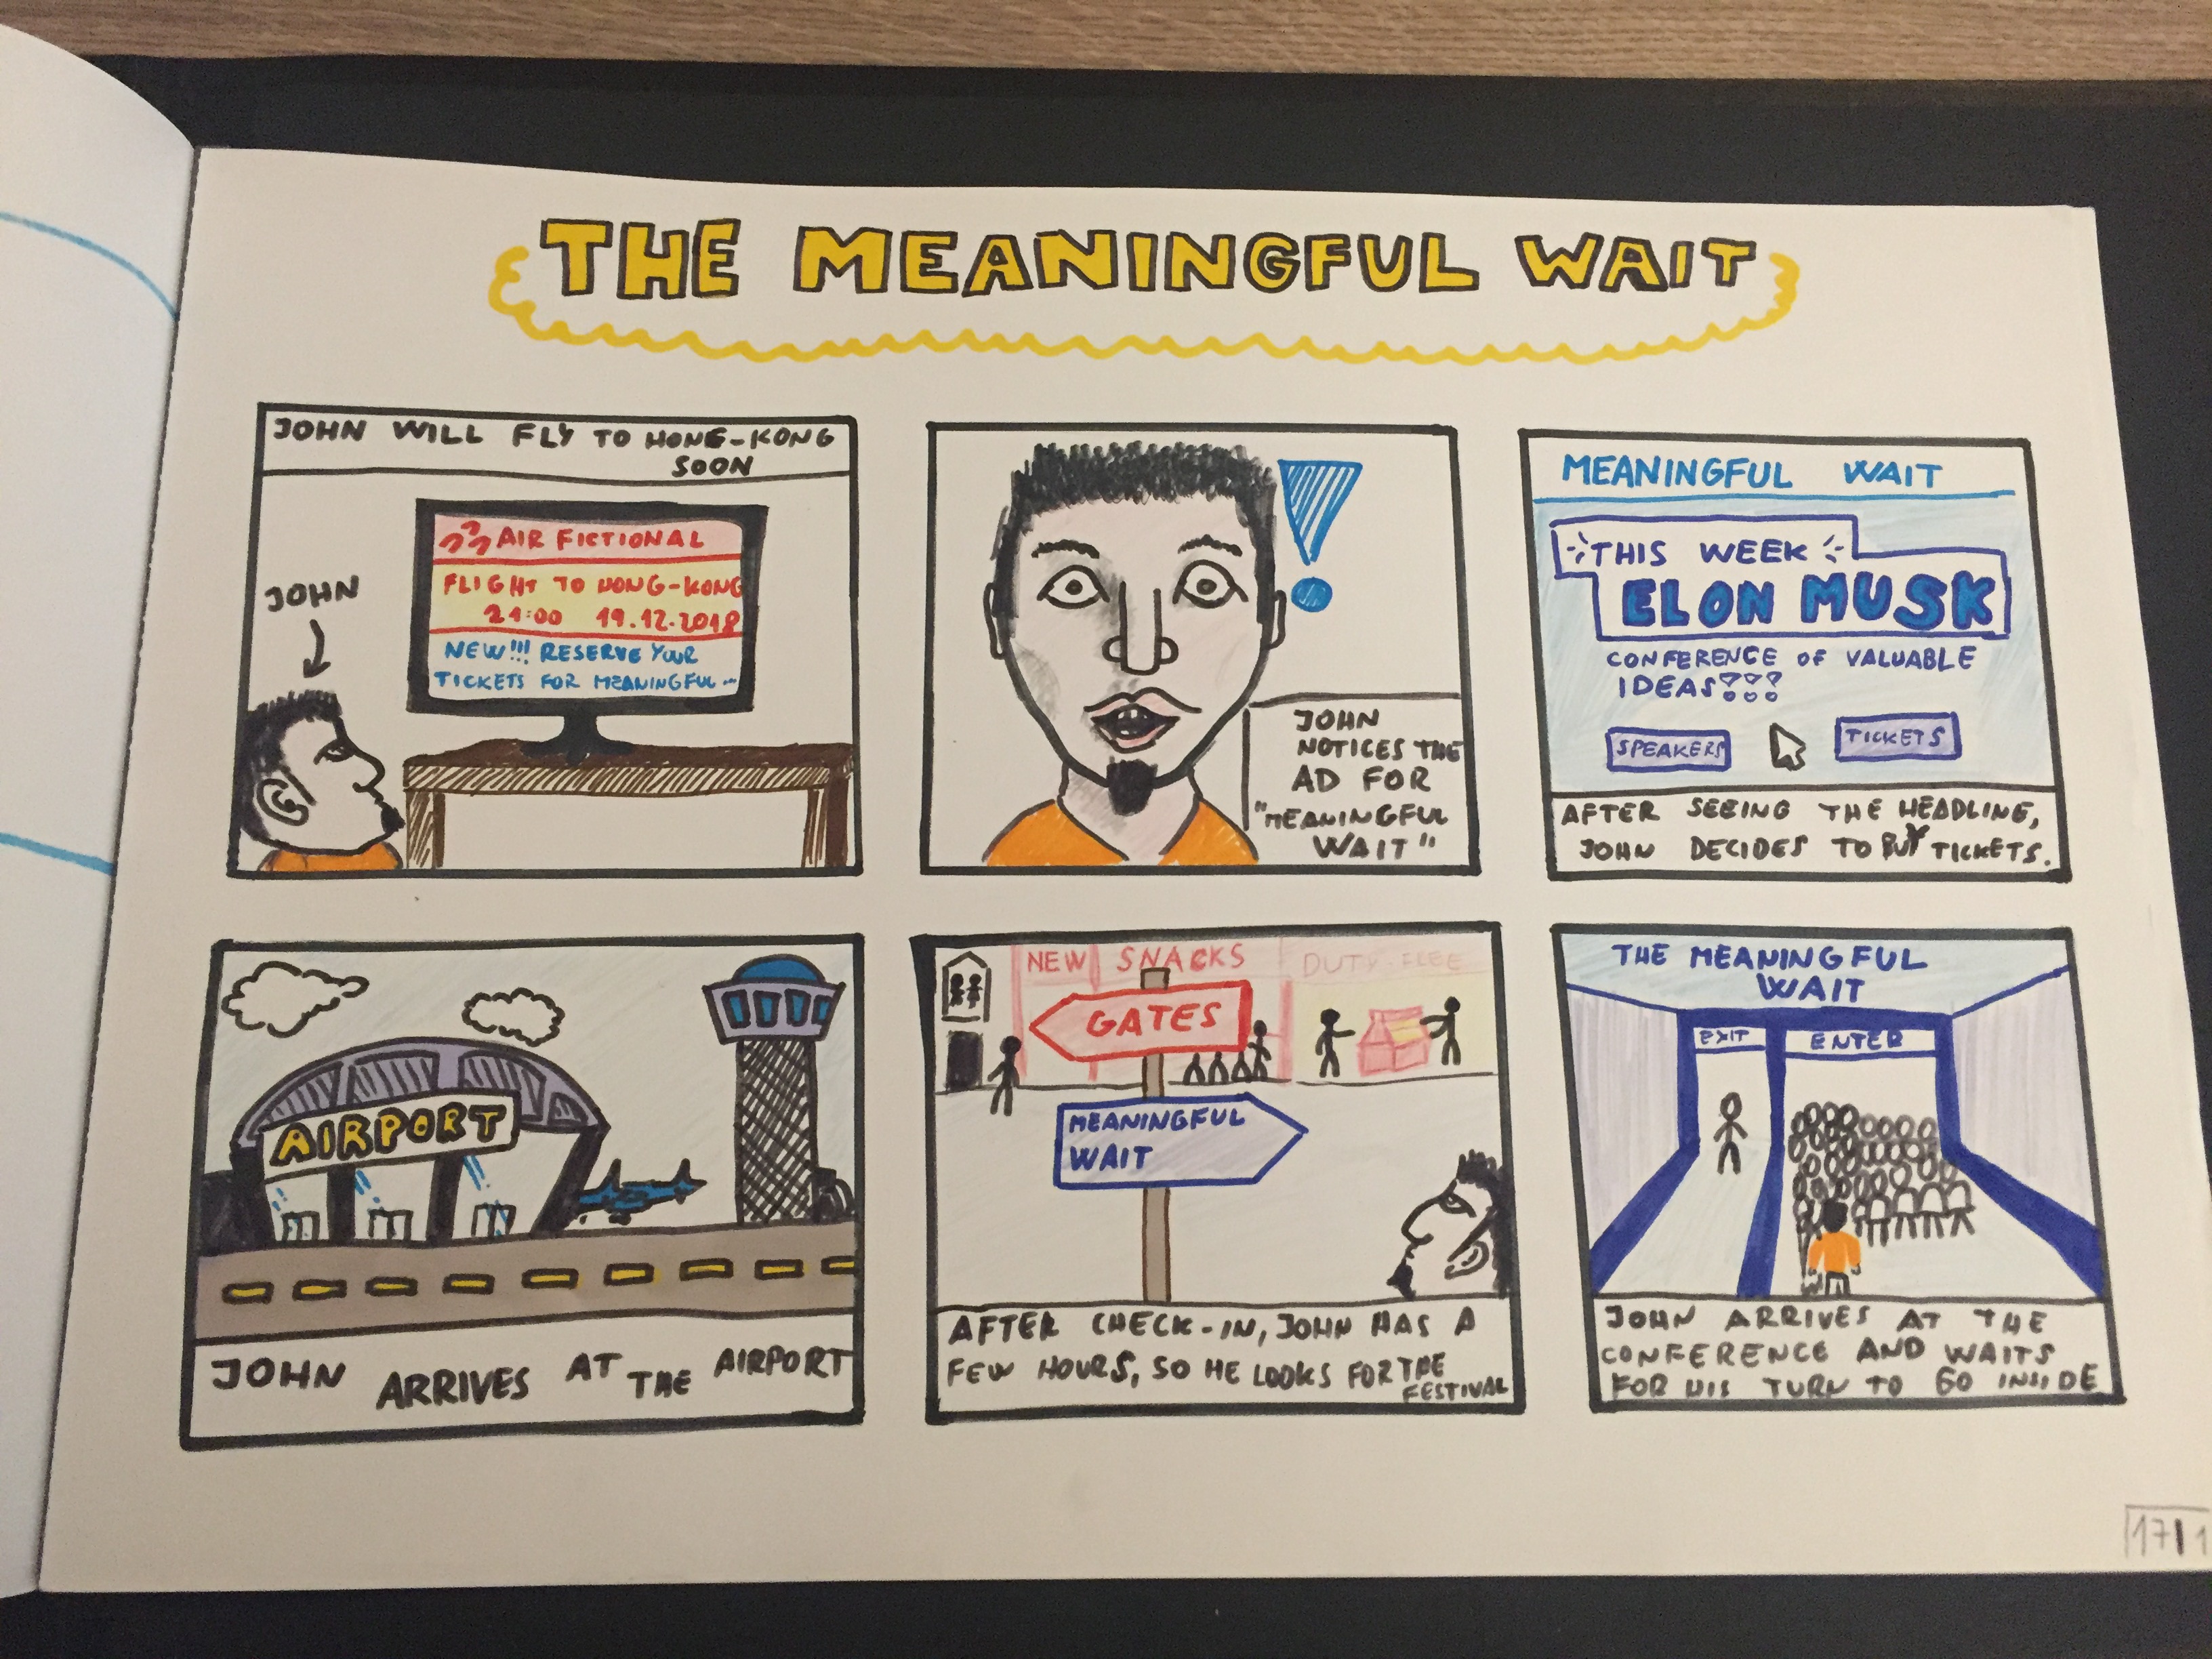 THE MEANINGFUL WAIT
JOHN WILL FLY TO HONG-KONG
SOON
JOHN
AIR FICTIONAL
FLIGHT TO HONG-KONG
21:00 19.12.2018
NEW!!! RESERVE YOUR
TICKETS FOR MEANINGFUL...
!
JOHN
NOTICES THE
AD FOR
"MEANINGFUL
WAIT"
MEANINGFUL WAIT
THIS WEEK
ELON MUSK
CONFERENCE OF VALUABLE
IDEAS!!!
SPEAKERS
TICKETS
AFTER SEEING THE HEADLINE,
JOHN DECIDES TO BUY TICKETS.
AIRPORT
JOHN ARRIVES AT THE AIRPORT
NEW SNACKS DUTY-FLEE
GATES
MEANINGFUL
WAIT
AFTER CHECK-IN, JOHN HAS A
FEW HOURS, SO HE LOOKS FOR THE
FESTIVAL
THE MEANINGFUL
WAIT
EXIT
ENTER
JOHN ARRIVES AT THE
CONFERENCE AND WAITS
FOR HIS TURN TO GO INSIDE